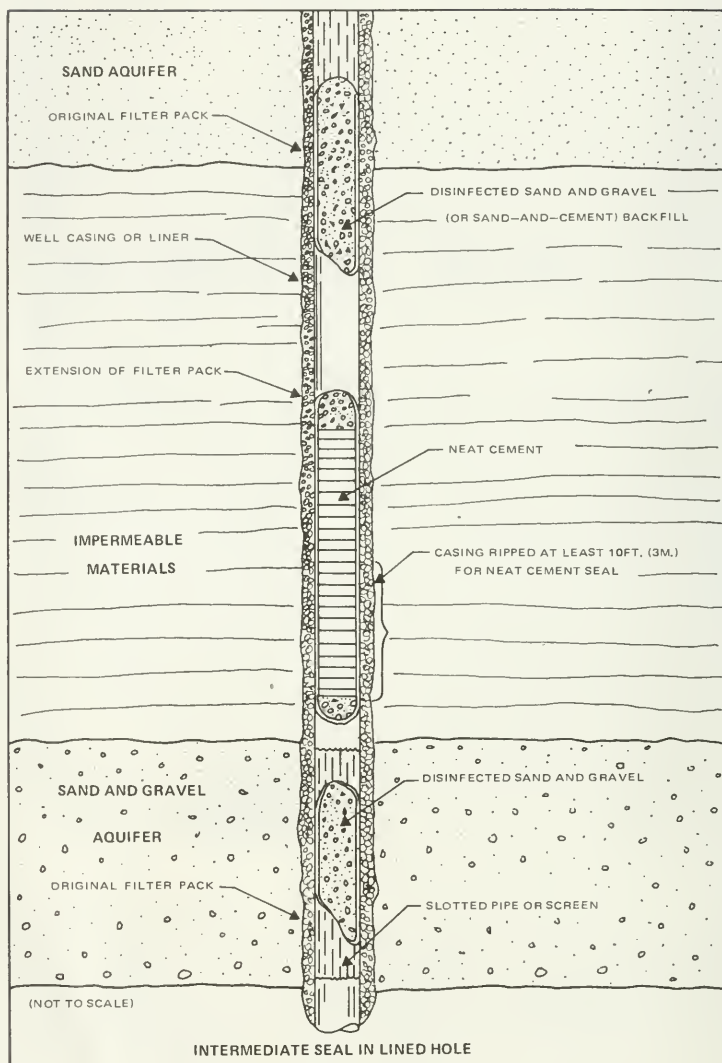 SAND AQUIFER
ORIGINAL FILTER PACK
DISINFECTED SAND AND GRAVEL
(OR SAND-AND-CEMENT) BACKFILL
WELL CASING OR LINER
EXTENSION OF FILTER PACK
NEAT CEMENT
IMPERMEABLE
MATERIALS
CASING RIPPED AT LEAST 10FT. (3M.)
FOR NEAT CEMENT SEAL
SAND AND GRAVEL
AQUIFER
DISINFECTED SAND AND GRAVEL
ORIGINAL FILTER PACK
SLOTTED PIPE OR SCREEN
(NOT TO SCALE)
INTERMEDIATE SEAL IN LINED HOLE